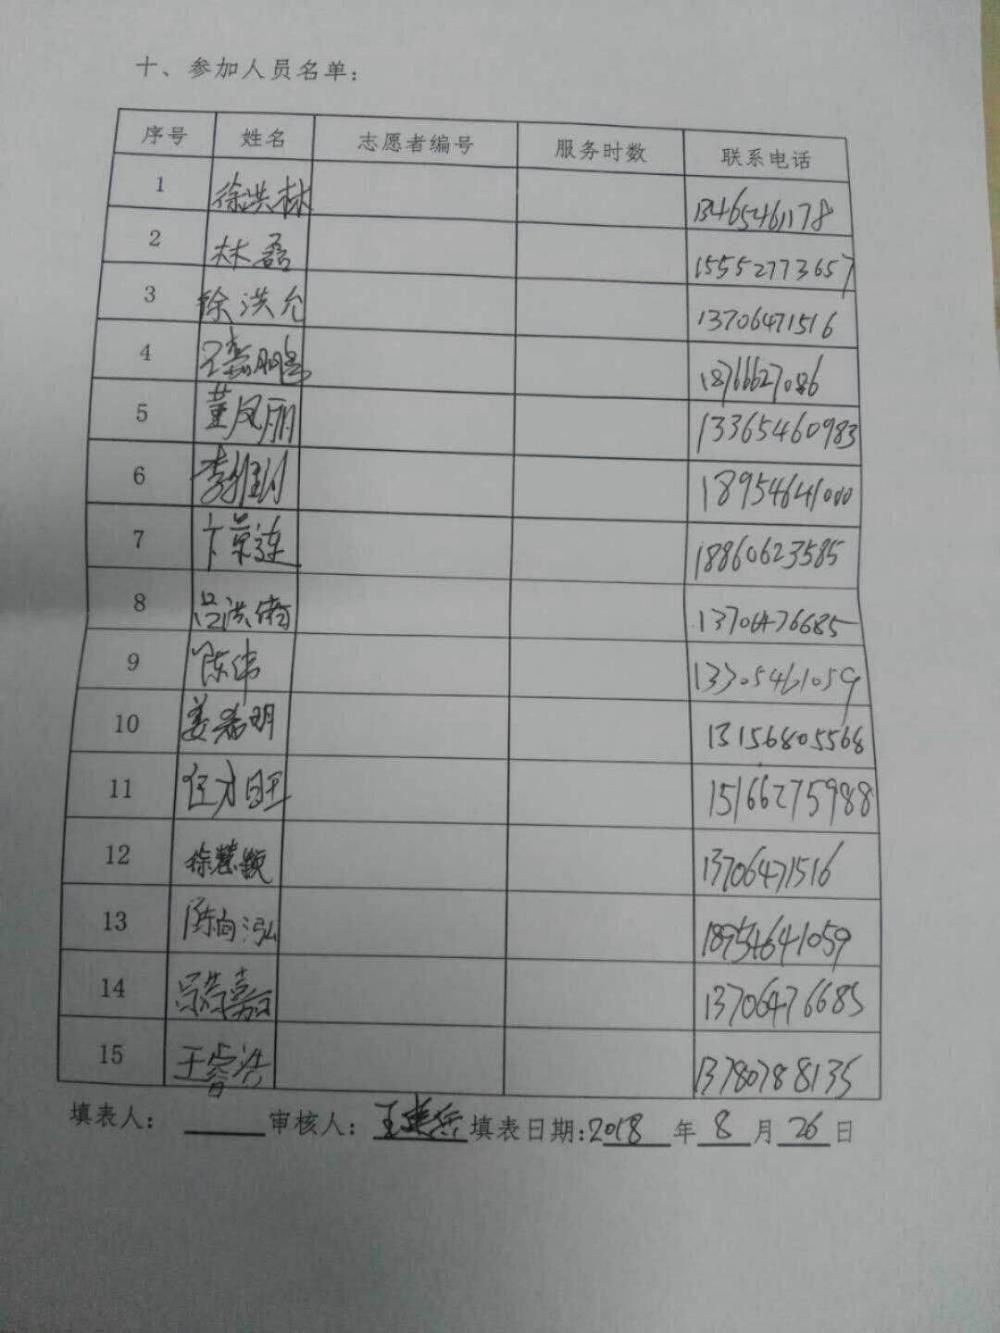 十、参加人员名单：
序号 姓名 志愿者编号 服务时数 联系电话
1 徐洪林 13465461178
2 林磊 15552773657
3 徐洪允 13706471516
4 18766627086
5 董凤丽 13365460983
6 18954641000
7 卞景连 18860623585
8 吕洪儒 13706476685
9 陈伟 13305461059
10 姜希明 13156805568
11 任才旺 15166275988
12 徐慧颖 13706471516
13 陈向泓 18954641059
14 13706476685
15 王睿浩 13780788135
填表人： 审核人： 填表日期：2018 年 8 月 26 日